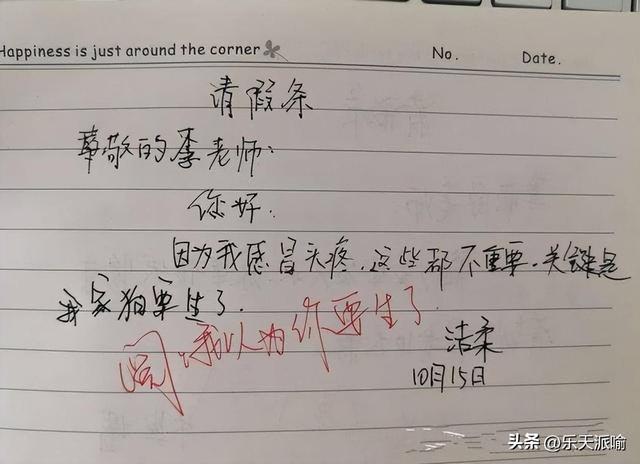 Happiness is just around the corner
No.
Date.
请假条
尊敬的李老师:
你好.
因为我感冒头疼.这些都不重要.关键是
我家狗要生了.
我以为你要生了
洁柔
10月15日
头条 @乐天派喻